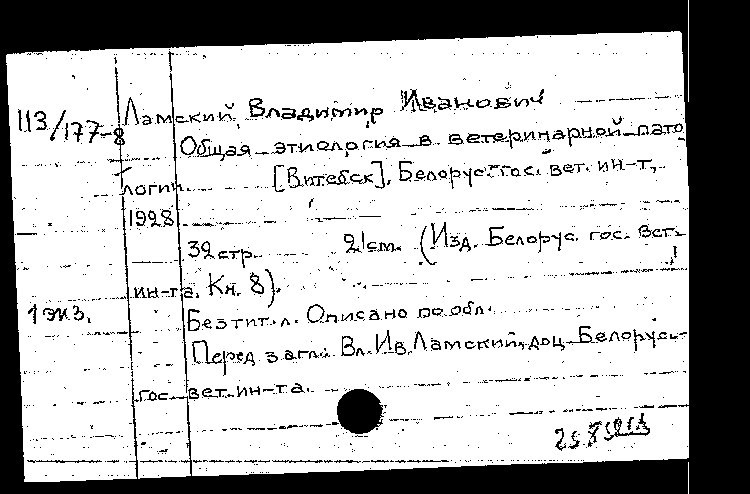 113/177-8
Ламский, Владимир Иванович
Общая этиология в ветеринарной пато
логии. [Витебск], Белорус. гос. вет. ин-т,
1928.
32 стр. 21 см. (Изд. Белорус. гос. вет.
ин-та. Кн. 8).
1 экз.
Без тит. л. Описано по обл.
Перед загл.: Вл. Ив. Ламский, доц. Белорус.
гос. вет. ин-та.